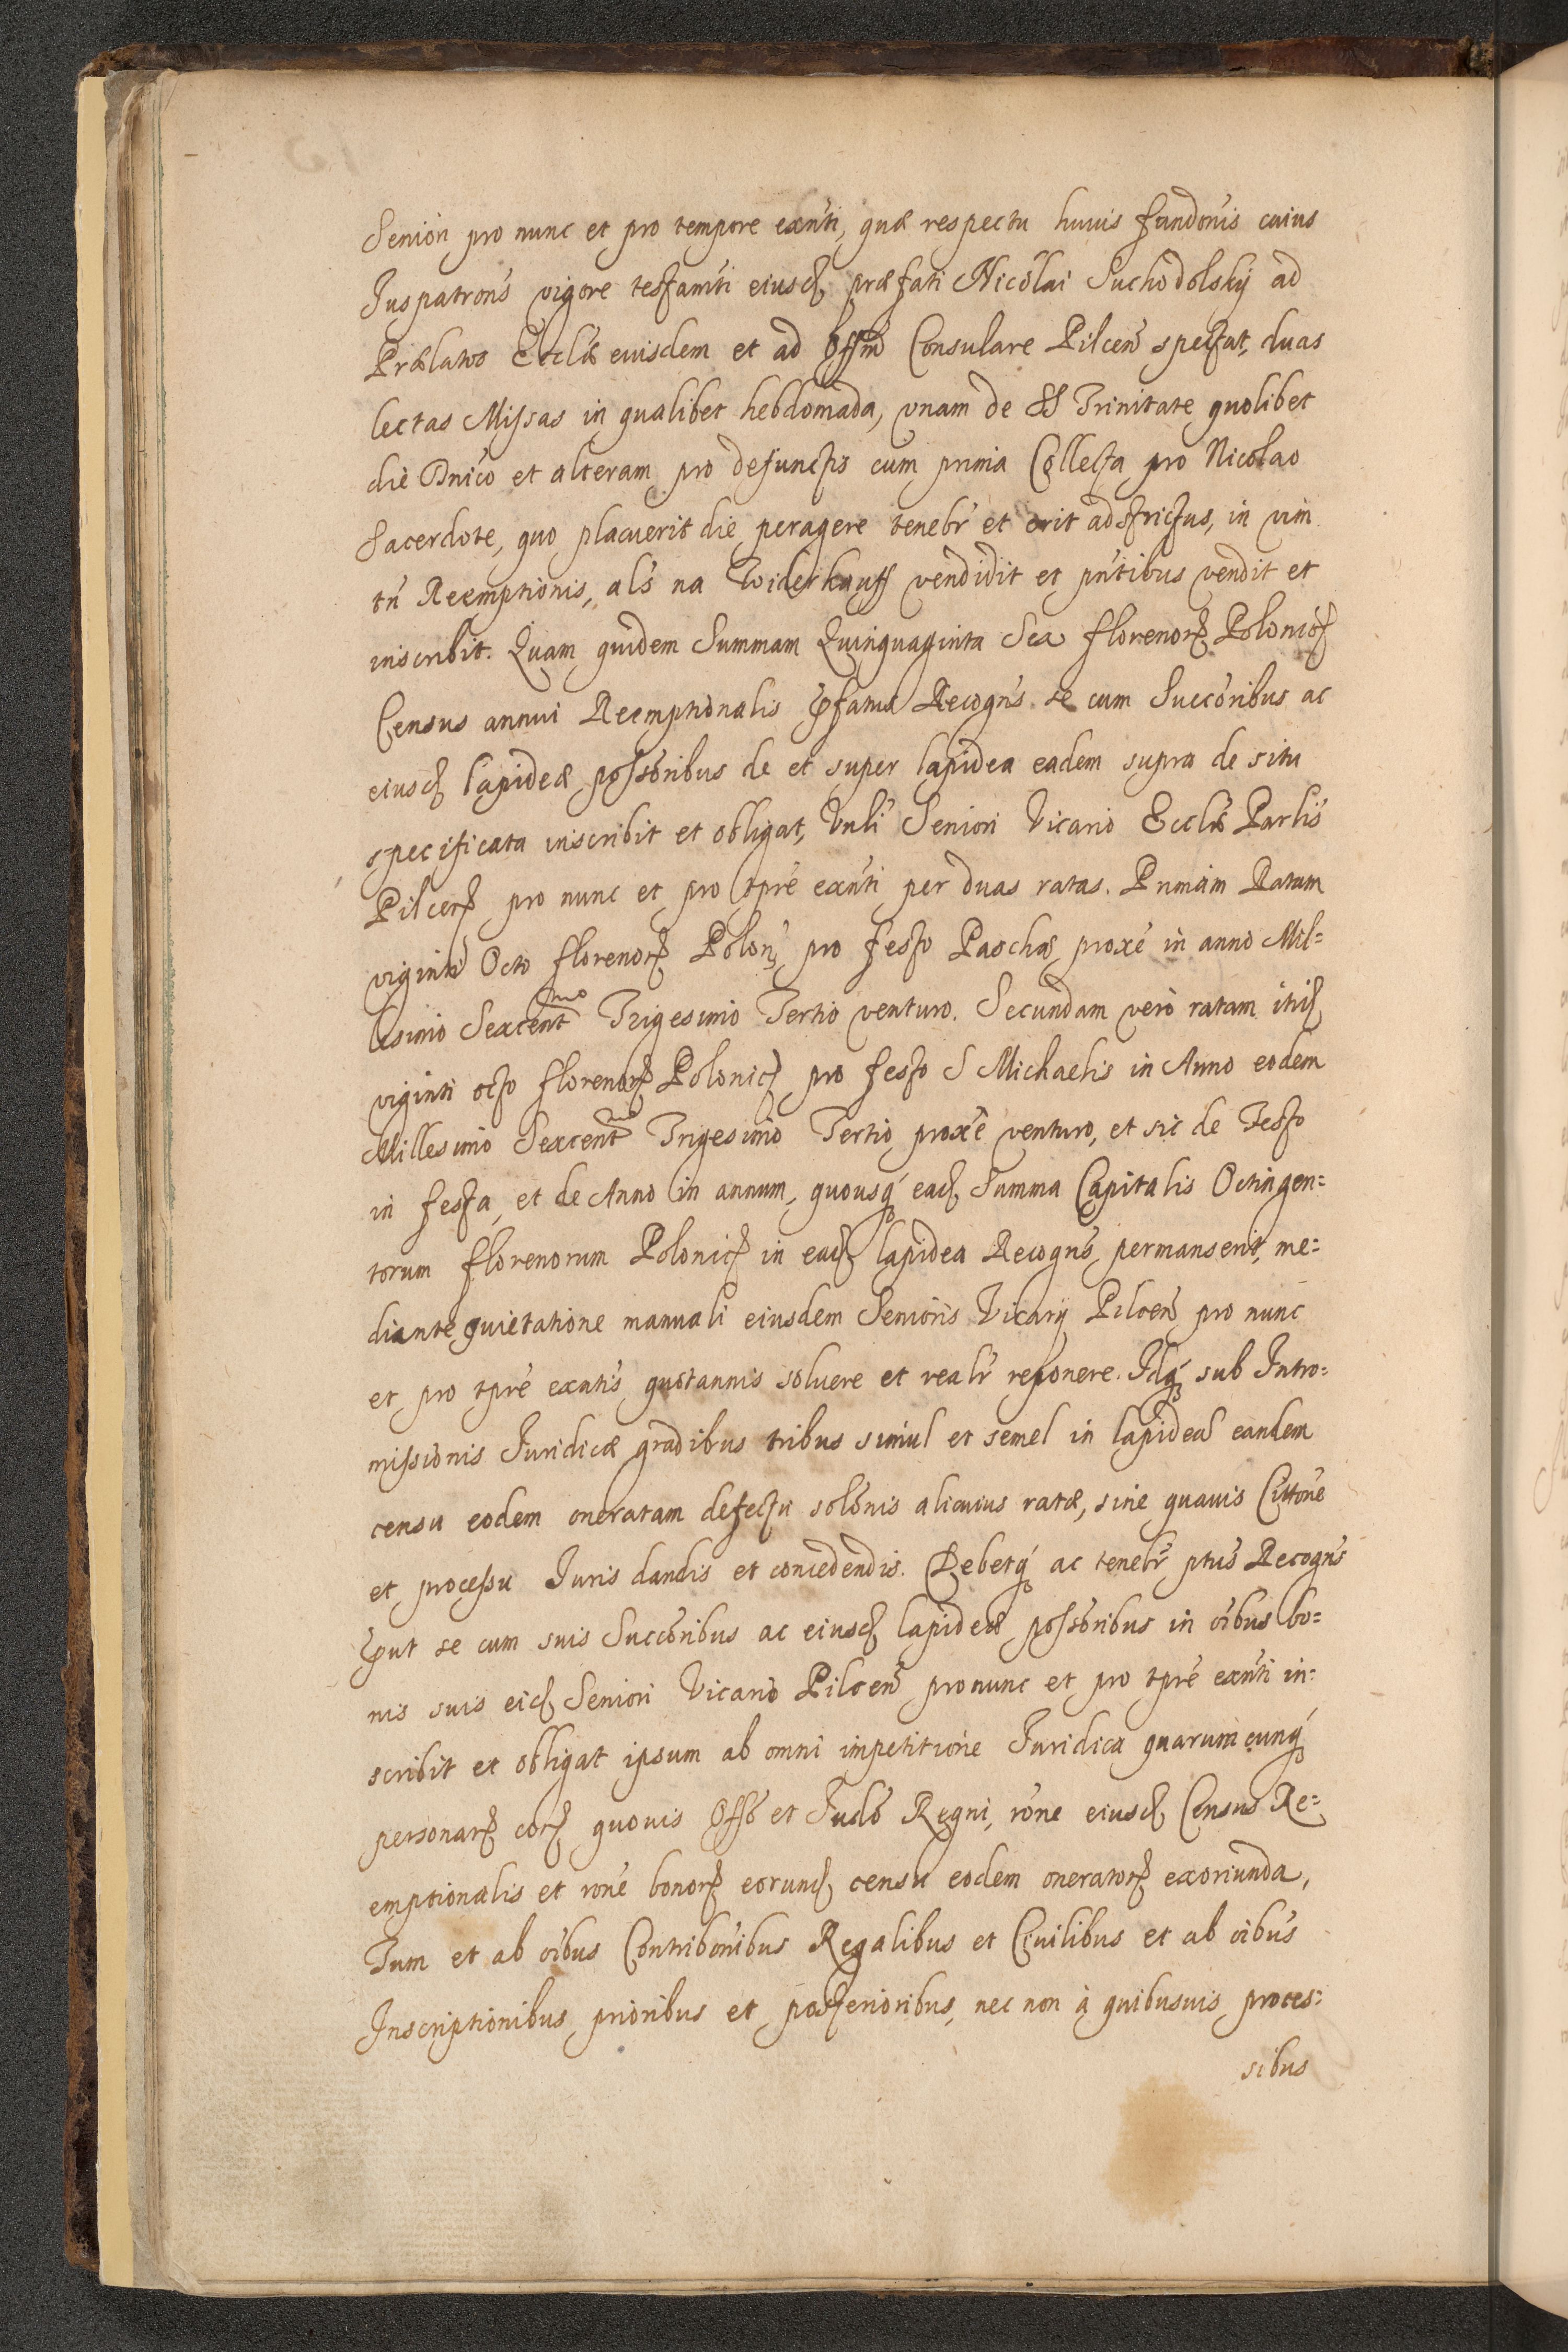 Seniori pro nunc et pro tempore exnti, quæ respectu huius fundonis cuius
Juspatrons vigore testamti eiusd præfati Nicolai Suchodolskÿ ad
Prælatos Ecclæ euisdem et ad Offm Consulare Pilcen spectat, duas
lectas Missas in qualibet hebdomada, vnam de SS Trinitate quolibet
die Dnico et alteram pro defunctis cum prima Collecta pro Nicolao
Sacerdote, quo placuerit die peragere tenebr et erit adstrictus, in vim
tn Reemptionis, als na Widerkauff vendidit et pntibus vendit et
inscribit. Quam quidem Summam Quinquaginta Sex florenor Polonic
Census annui Reemptionalis Recogns se cum Succoribus ac
eiusd lapideæ possoribus de et super lapidea eadem supra de situ
specificata inscribit et obligat, Vnli Seniori Vicario Ecclæ Parlis
Pilcen pro nunc et pro tpre exnti per duas ratas. Primam Ratam
viginti Octo florenor Polon, pro festo Paschæ proxe in anno Mil=
lesimo Sexcent^mo Trigesimo Tertio venturo. Secundam vero ratam itid
viginti octo florenor Polonic pro festo S Michaelis in Anno eodem
Millesimo Sexcent^mo Trigesimo Tertio proxe venturo, et sic de Festo
in festa, et de Anno in annum, quousq ead Summa Capitalis Octingen=
torum florenorum Polonic in ead lapidea Recogns permanserit, me=
diante quietatione manuali eiusdem Senioris Vicarÿ Pilcen pro nunc
et pro tpre exntis quotannis soluere et realr reponere. Idq sub Intro=
missionis Juridicæ gradibus tribus simul et semel in lapidea eandem
censu eodem oneratam defectu solonis alicuius ratæ, sine quauis Cittone
et processu Juris dandis et concedendis. Debetq ac tenebr ptus Recogns
put se cum suis Succoribus ac eiusd lapideæ possoribus in oibus bo=
nis suis eid Seniori Vicario Pilcen pronunc et pro tpre exnti in=
scribit et obligat ipsum ab omni impetitione Juridica quarumcunq
personar cor quouis Offo et Judo Regni, rone eiusd Census Re=
emptionalis et rone bonor eorund censu eodem onerator exoriunda,
Tum et ab oibus Contribonibus Regalibus et Ciuilibus et ab oibus
Inscriptionibus prioribus et posterioribus, nec non à quibusuis proces=
sibus